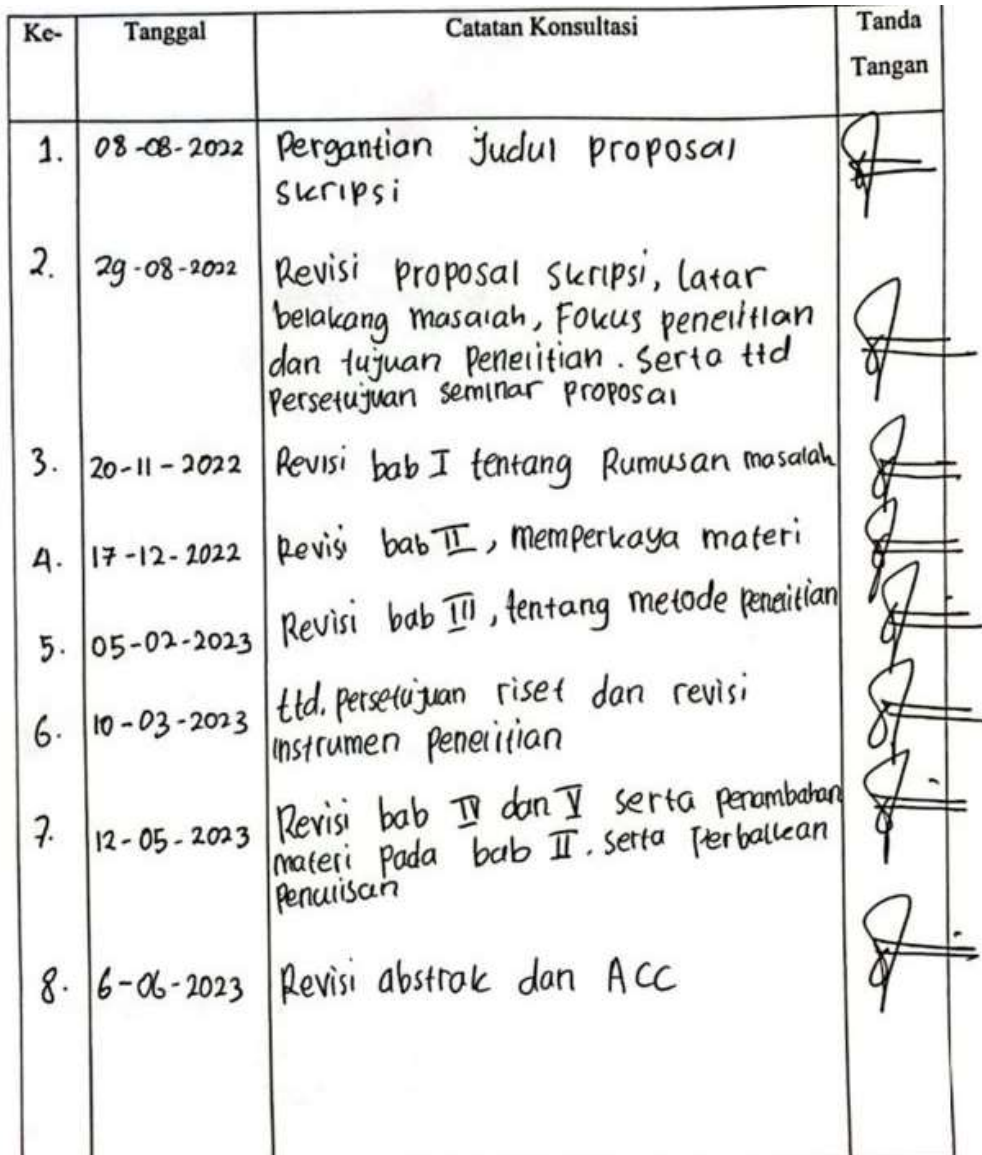 Ke- Tanggal Catatan Konsultasi Tanda
Tangan
1. 08-08-2022 Pergantian Judul proposal
skripsi
2. 29-08-2022 Revisi proposal skripsi, latar
belakang masalah, Fokus penelitian
dan tujuan penelitian. Serta ttd
Persetujuan seminar proposal
3. 20-11-2022 Revisi bab I tentang Rumusan masalah
4. 17-12-2022 Revisi bab II, memperkaya materi
5. 05-02-2023 Revisi bab III, tentang metode penelitian
6. 10-03-2023 ttd. persetujuan riset dan revisi
instrumen penelitian
7. 12-05-2023 Revisi bab IV dan V serta penambahan
materi pada bab II. serta perbaikan
penulisan
8. 6-06-2023 Revisi abstrak dan ACC